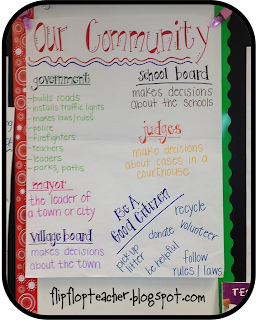 Our Community
government
- builds roads
- installs traffic lights
- makes laws/rules
- police
- firefighters
- teachers
- leaders
- parks, paths
school board
makes decisions
about the schools
judges
make decisions
about cases in a
courthouse
mayor
the leader of
a town or city
village board
makes decisions
about the town
Be A
Good Citizen
recycle
donate
volunteer
pick up
litter
be helpful
follow
rules | laws
TE
flipflopteacher.blogspot.com